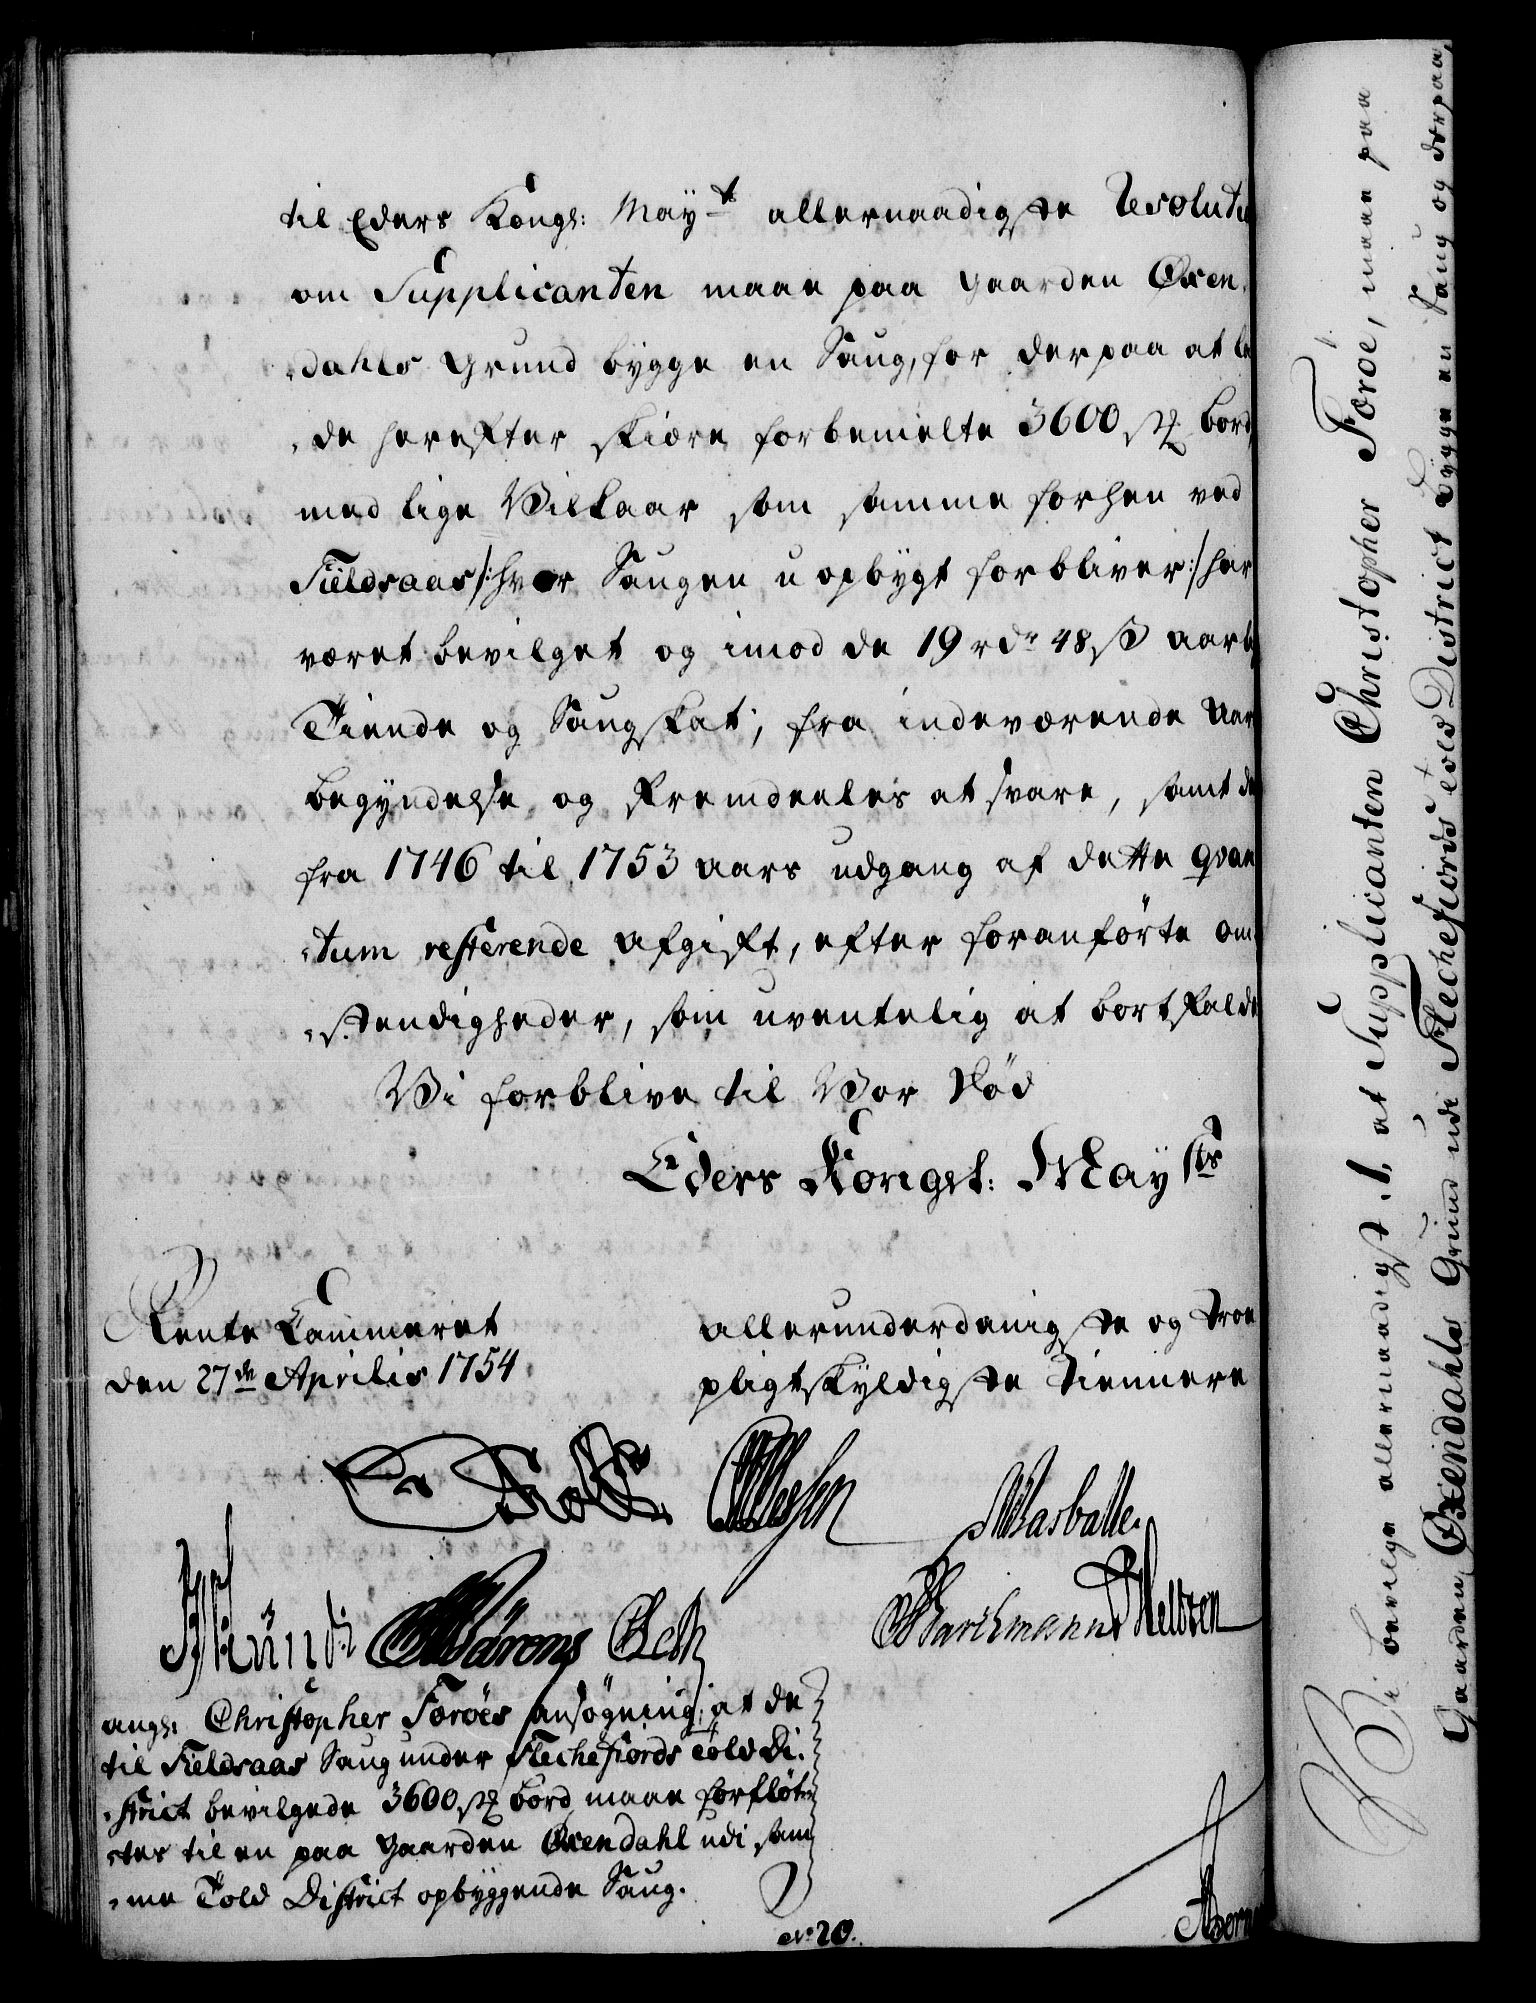 til Eders Kongl: May<sup>t</sup> allernaadigste Resolutio
om Supplicanten maae paa Gaarden Oxen-
„dahls Grund bÿgge en Saug, for derpaa at la-
„de herefter skiære forbemelte 3600 st: bord
med lige Vilkaar som samme forhen ved
Fieldsaas /: hvor Saugen uopbygt forbliver :/ har
været bevilget og imod de 19 rd<sup>r</sup> 48 ß aarl:
Tiende og Saugskat, fra indeværende Aars
begÿndelse og fremdeeles at svare, samt de
fra 1746 til 1753 aars udgang af dette qvan-
„tum resterende Afgift, efter foranførte om-
„stendigheder, som uventelig at bortfalde
Vi forblive til Vor Død
Eders Kongel: Maÿ<sup>ts</sup>
Rente Cammeret
den 27<sup>de</sup> Aprilis 1754
allerunderdanigste og troe
pligtskÿldigste Tiennere
Holst
Masballe
Barchmann Meltzen
ang: Christopher Foröes ansögning, at de
til Fieldsaas Saug under Flechefiords Told Di-
„strict bevilgede 3600 st: bord maae forflöt-
„tes til en paa Gaarden Oxendahl udi sam-
„me Told District opbÿggende Saug.
No 20.
Vi bevilge allernaadigst, at Supplicanten Christopher Foröe, maae paa
Gaarden Oxendahls Grund udi Flechefiords Told District bÿgge en Saug og derpaa,